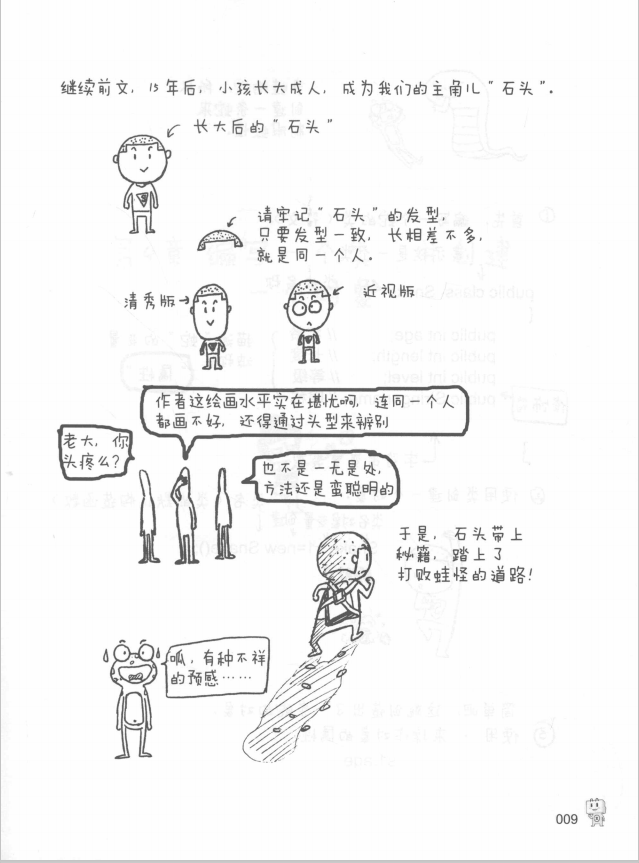 继续前文，15年后，小孩长大成人，成为我们的主角儿“石头”。
长大后的“石头”
请牢记“石头”的发型，
只要发型一致，长相差不多，
就是同一个人。
清秀版
近视版
作者这绘画水平实在堪忧啊，连同一个人
都画不好，还得通过头型来辨别
老大，你
头疼么？
也不是一无是处，
方法还是蛮聪明的
于是，石头带上
秘籍，踏上了
打败蛙怪的道路！
呱，有种不祥
的预感……
009